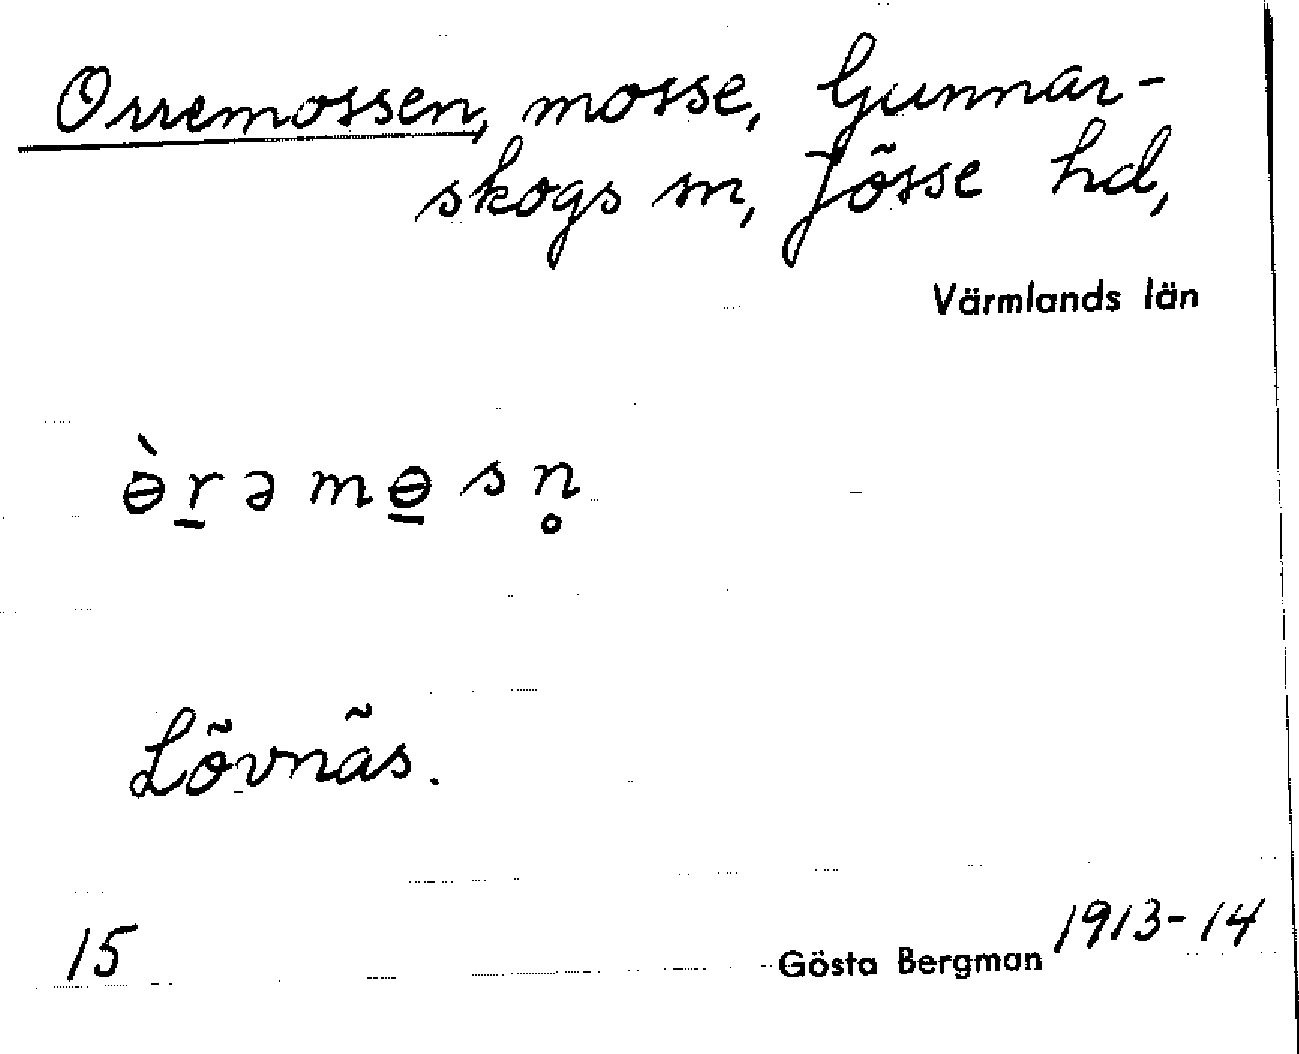 Orremossen, mosse, Gunnar-
skogs sn, Jösse hd,
Värmlands län
ɵ̀r̲əmɵ̲sn̥
Lövnäs.
15
Gösta Bergman 1913-14